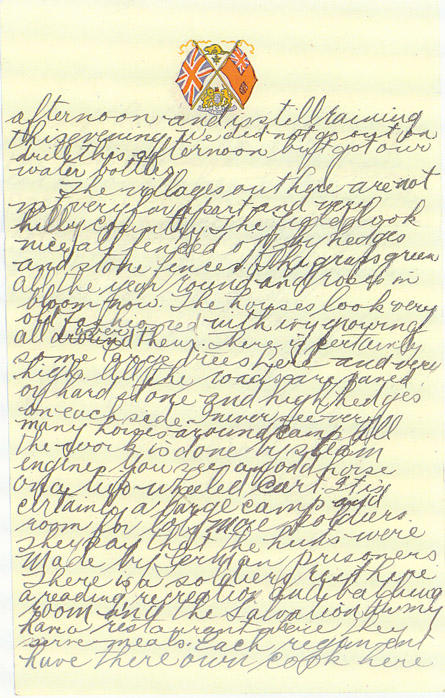 afternoon and is still raining
this evening. We did not go out on
drill this afternoon but got our
water bottles.
The villages out here are not
not very far apart and very
hilly country. The fields look
nice all fenced of by hedges
and stone fences. The grass green
all the year round and roses in
bloom now. The houses look very
old fashioned with ivy growing
all around them. There is certainly
some large trees here and very
high. All the roads are paved
of hard stone and high hedges
on each side. I never see very
many horses around camp. All
the work is done by steam
engine you see an odd horse
on a two-wheeled cart. It is
certainly a large camp and
room for lots more soldiers.
They say that the huns were
Made by German prisoners.
There is a soldiers rest here
a reading, recreation and
room and the Salvation Army
have a restaurant were they
serve meals. Each regiment
have there own cook here